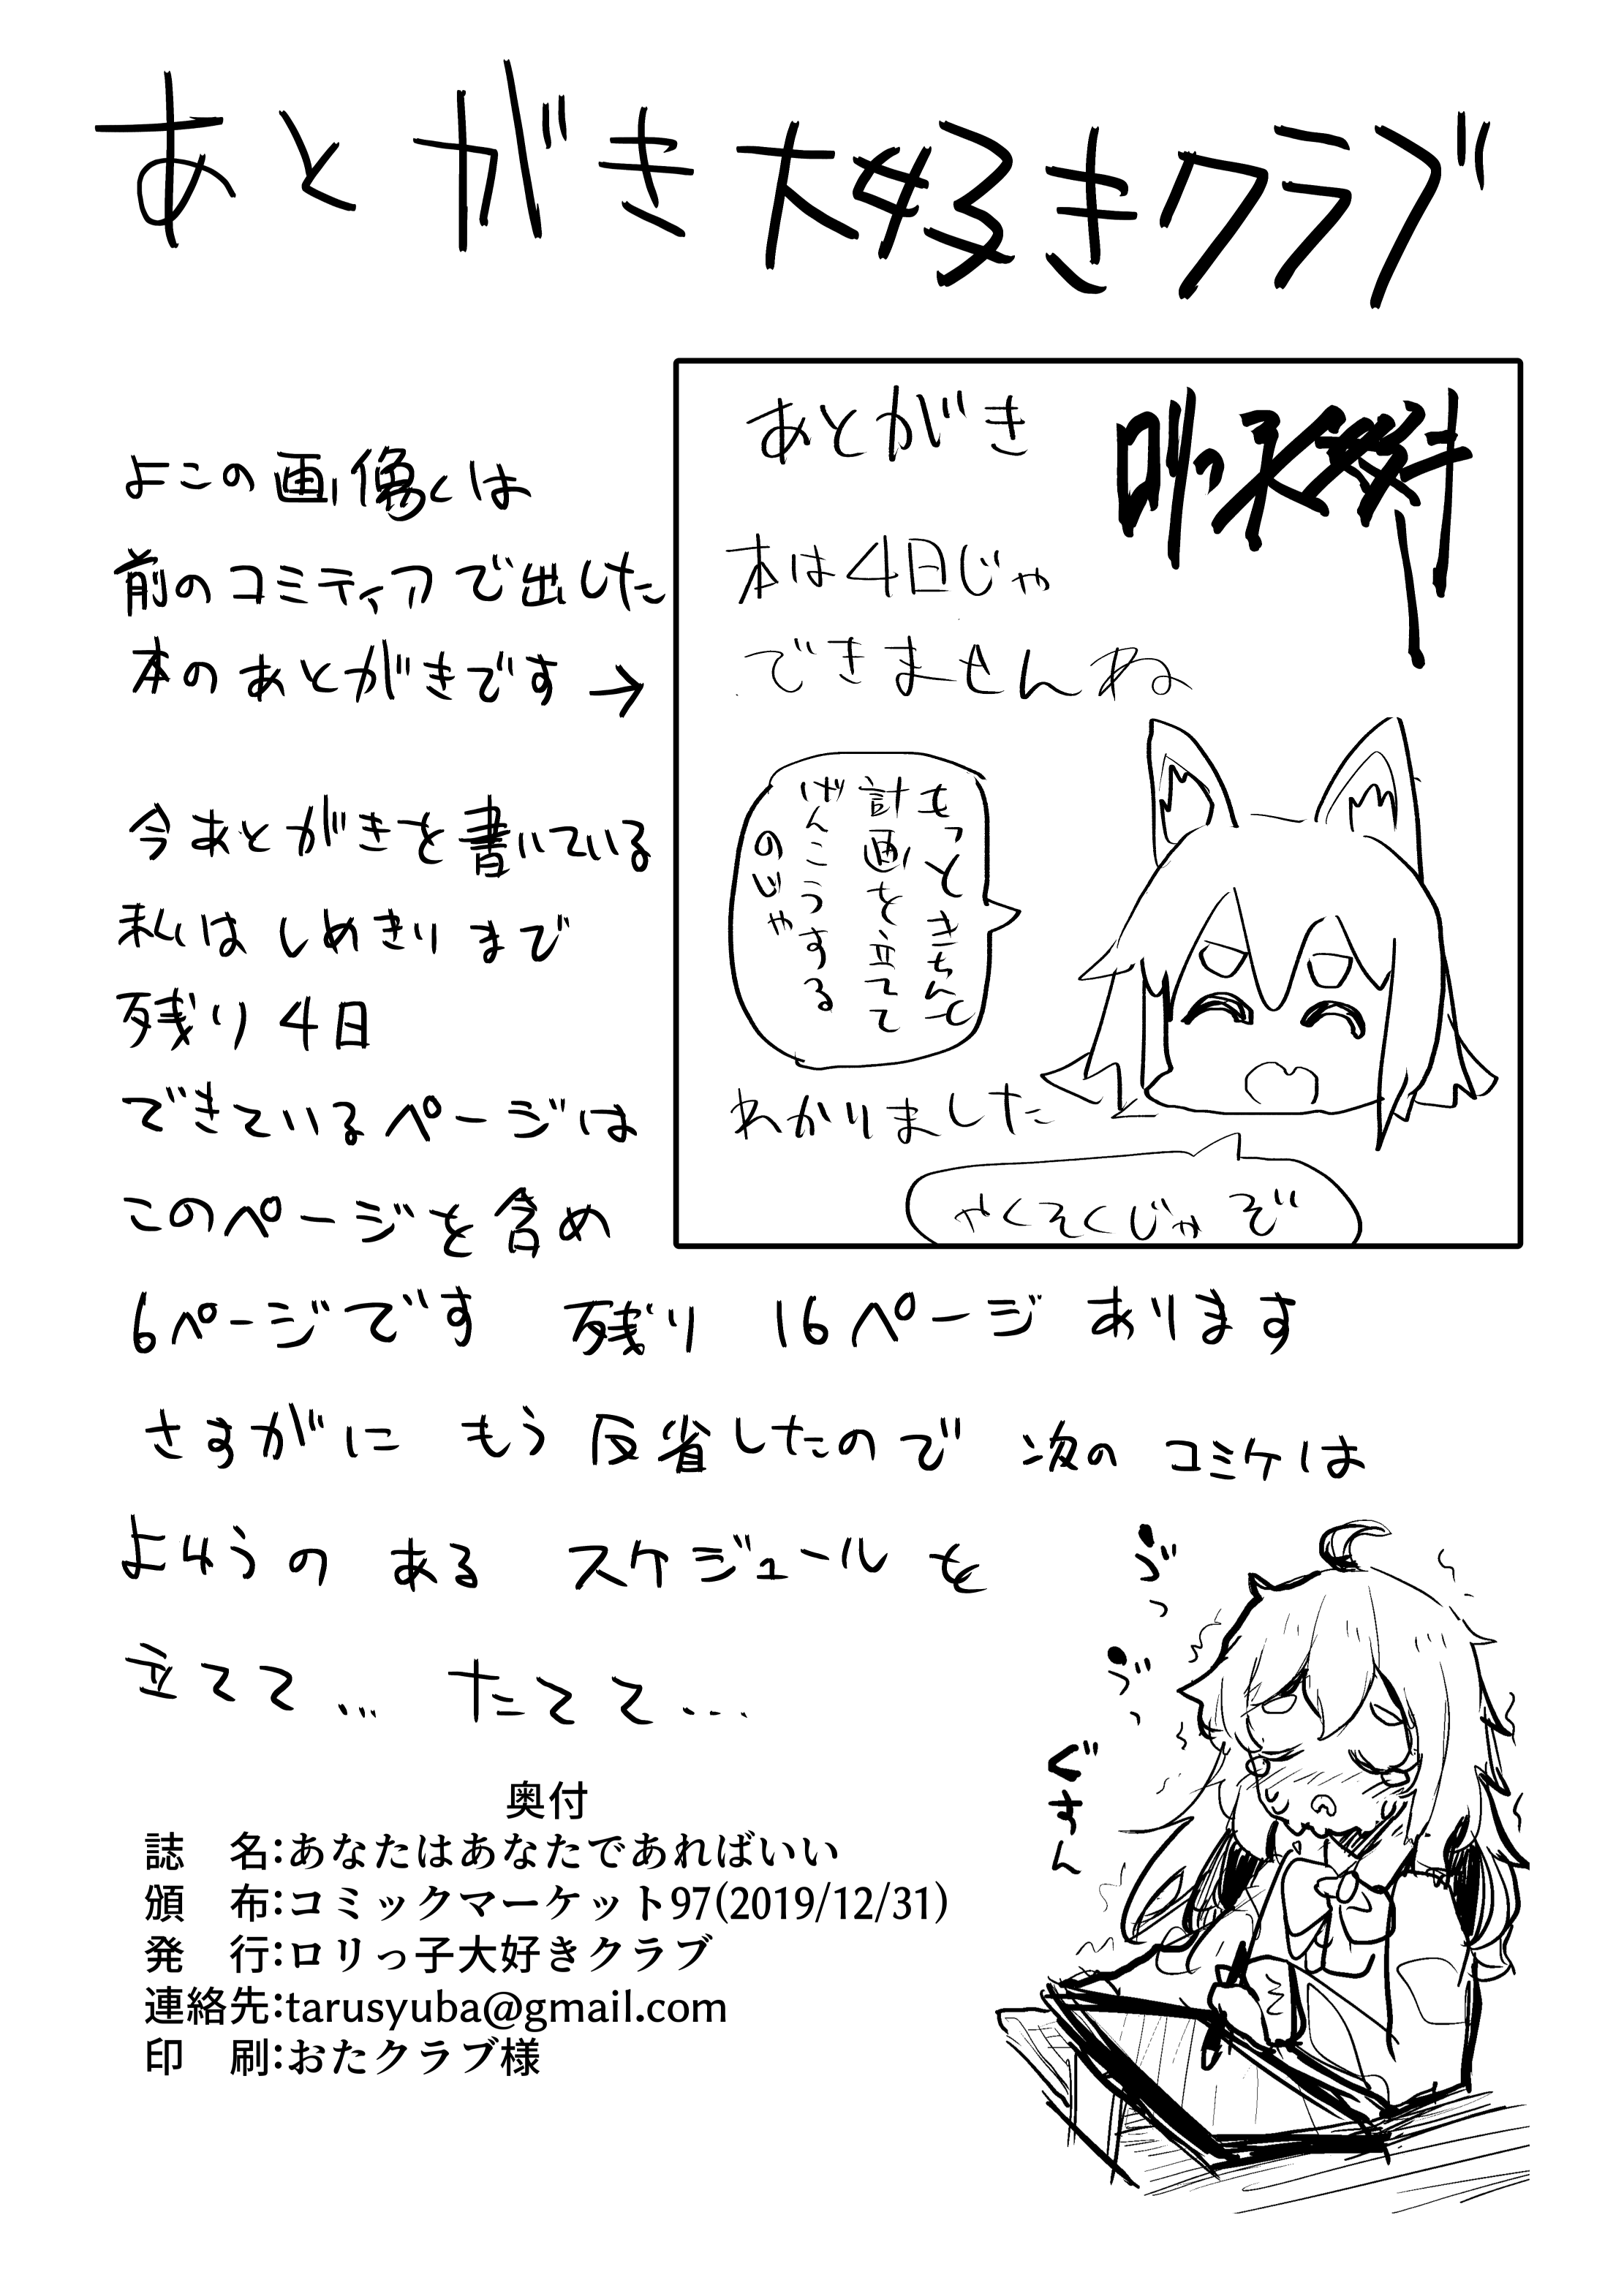 あとがき大好きクラブ
よこの画像くは
前のコミティアで出した
本のあとがきです→
あとがき
本は4日じゃ
できませんね
もっときちんと
計画を立てて
げんこうする
のじゃ
わかりました
やくそくじゃぞ
今あとがきを書いている
私はしめきりまで
残り4日
できているページは
このページを含め
6ページです 残り 16ページ あります
さすがに もう 反省したので 次の コミケは
よゆうの ある スケジュールを
立てて… たてて…
ぶっ
ぶっ
ぐすん
奥付
誌 名:あなたはあなたであればいい
頒 布:コミックマーケット97(2019/12/31)
発 行:ロリっ子大好きクラブ
連絡先:tarusyuba@gmail.com
印 刷:おたクラブ様